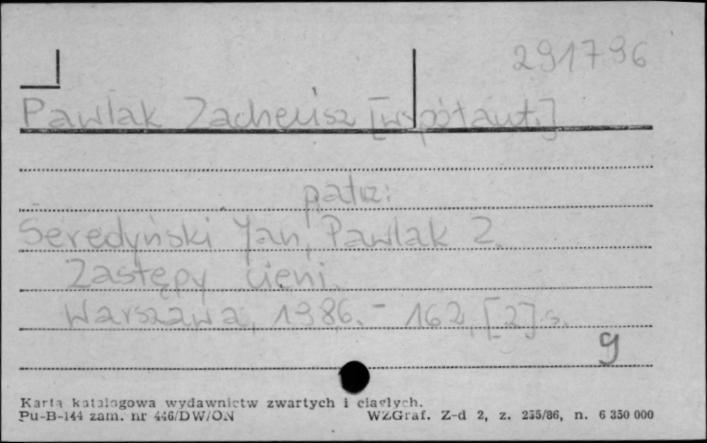 291796
Pawlak Zacheusz [współaut.]
patrz:
Seredyński Jan, Pawlak Z.
Zastępy cieni.
Warszawa, 1986. - 162, [2] s.
g
Karta katalogowa wydawnictw zwartych i ciągłych.
Pu-B-144 zam. nr 446/DW/ON WZGraf. Z-d 2, z. 235/86, n. 6 350 000